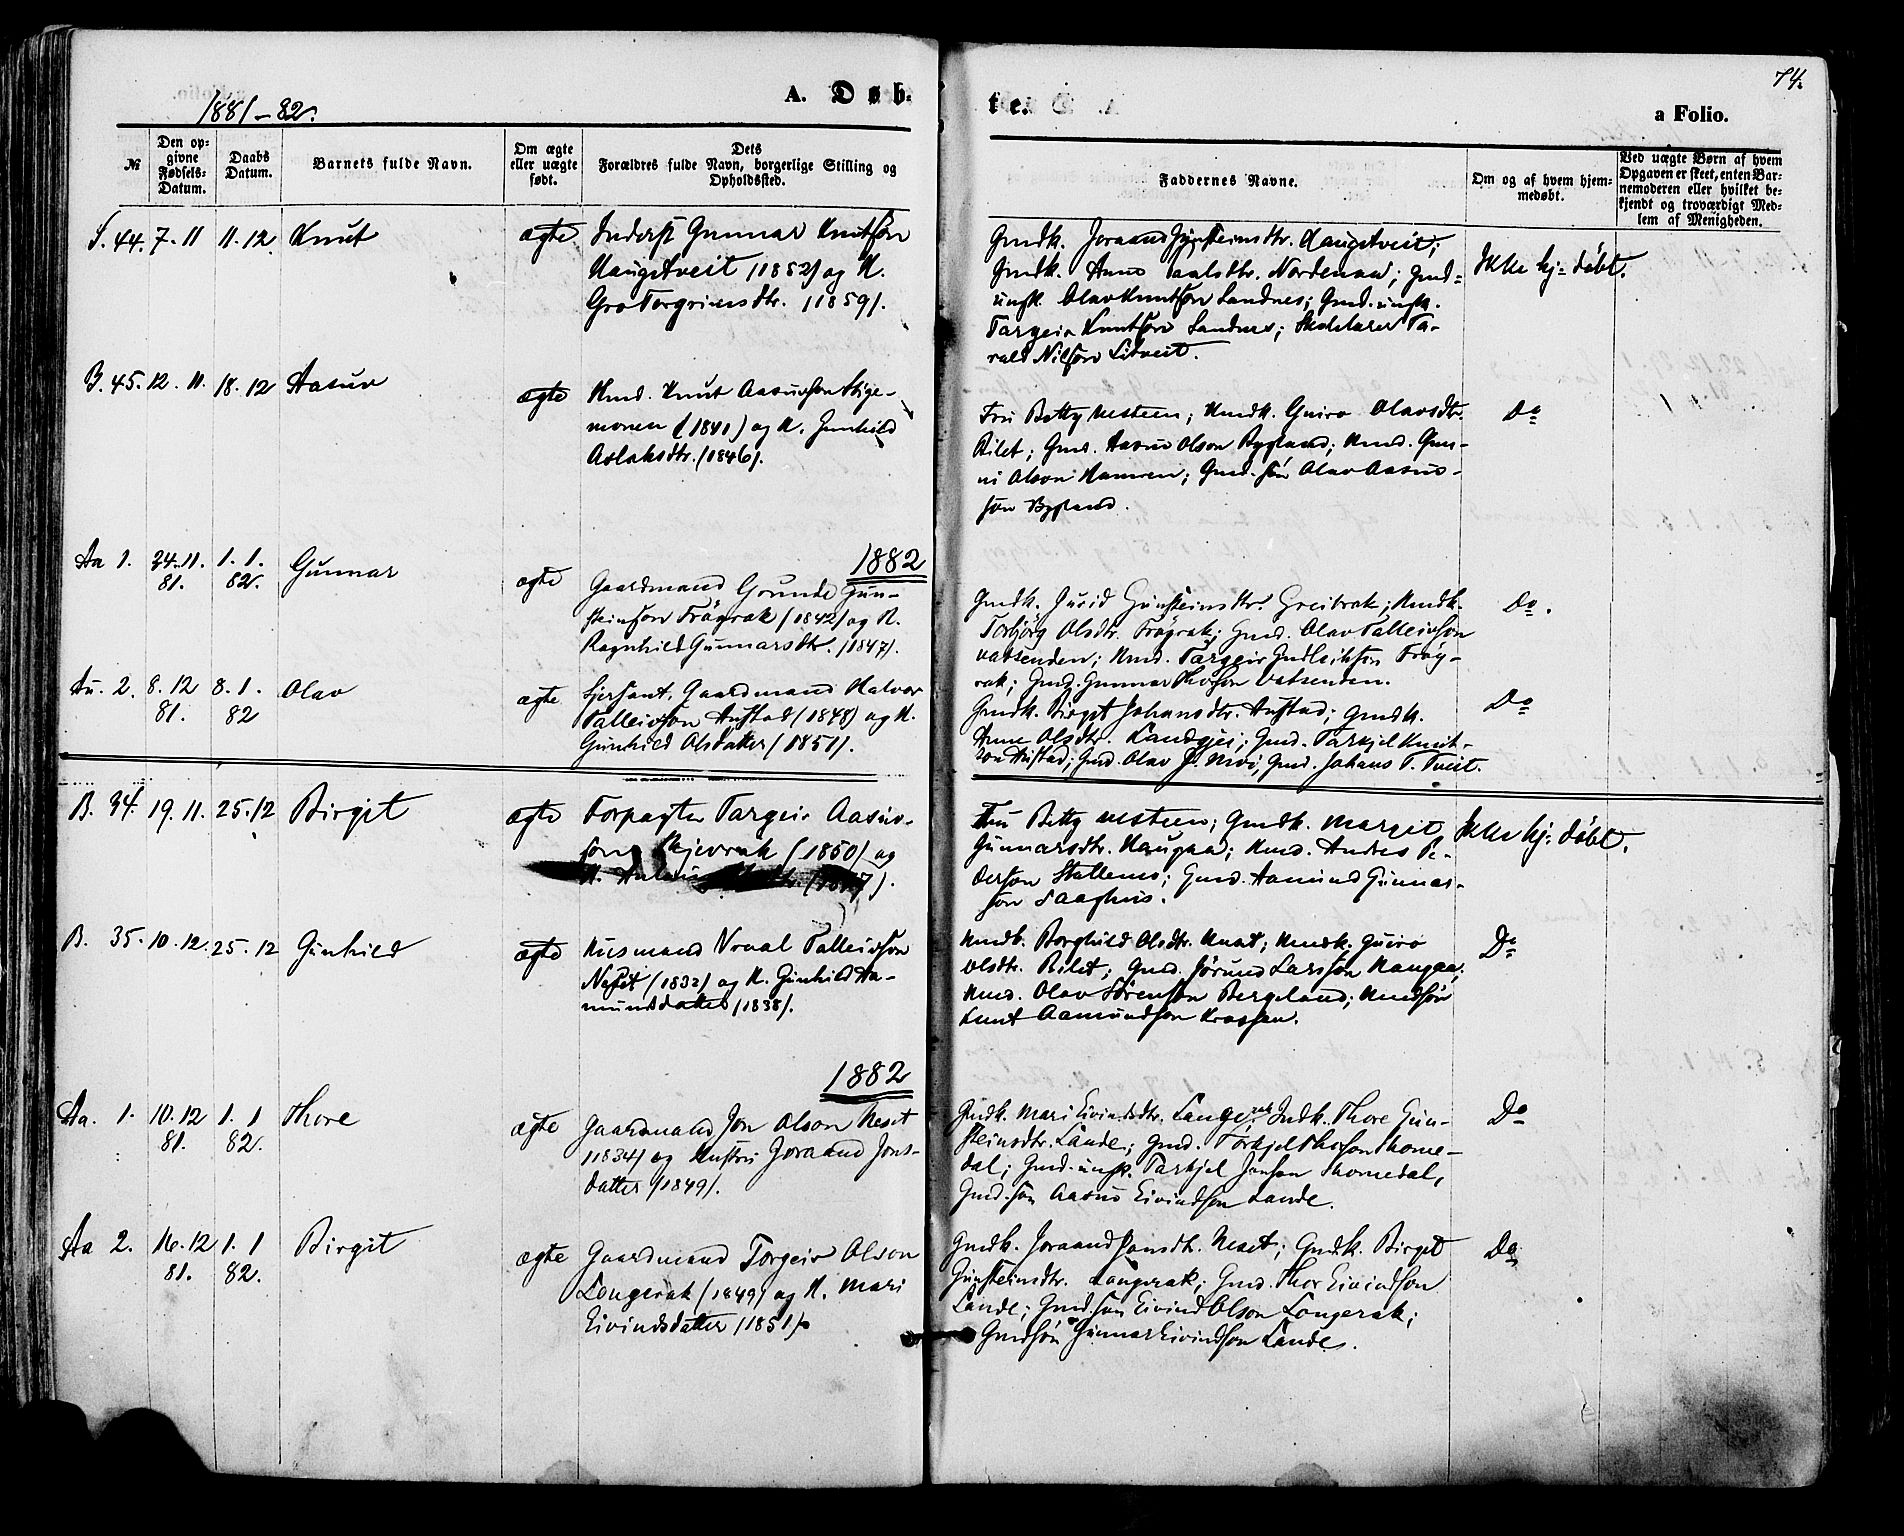 1881-82.
A. Døb-
te.
74.
a Folio.
№
Den op-
givne
Fødsels-
Datum.
Daabs
Datum.
Barnets fulde Navn.
Om ægte
eller uægte
født.
Dets
Forældres fulde Navn, borgerlige Stilling og
Opholdssted.
Faddernes Navne.
Om og af hvem hjem-
medøbt.
Ved uægte Børn af hvem
Opgaven er skeet, enten Bar-
nemoderen eller hvilket be-
kjendt og troværdigt Med-
lem af Menigheden.
S. 44. 7.11 11.12 Knut
ægte
Inderst Gunnar Knutson
Haugetveit (1852) og K.
Gro Torgrimsdtr. (1859).
Gmdk. Joraand Gunsteinsdtr. Haugetveit;
Gmdk. Anne Paalsdtr. Nordenaa; Gmd-
ungk. Olav Knutson Sandnes; Gmd. ungk.
Targeir Knutson Sandnes; Skolelærer Ta-
rald Nilson Litveit.
Ikke hj= døbt.
B. 45. 12.11. 18.12 Aasuv
ægte
Kmd. Knut Aasuvson Stige-
monen (1841) og K. Gunhild
Aslaksdtr. (1846).
Fru Betty Nesteen; Kmdk. Guro Olavsdtr.
Rilet; Gmd. Aasuv Olson Bygland; Kmd. Gun-
ni Olson Hamren; Gmd. søn Olav Aasuv-
søn Bygland.
Do
1882
Aa 1. 24.11. 81. 1.1. 82. Gunnar
ægte
Gaardmand Grunde Gun-
steinson Frøyrak (1842) og K.
Ragnhild Gunnarsdtr. (1847).
Gmdk. Jurid Gunsteinsdtr. Greibrok; Kmdk.
Torbjørg Olsdtr. Frøyrak; Gmd. Olav Talleivson
Vatsenden; Kmd. Targeir Gudleikson Frøy-
rak; Gmd. Gunnar Thoson Vatsenden.
Do.
Au. 2. 8.12 81. 8.1. 82 Olav
ægte
Serjant, Gaardmand Halvor
Talleivson Austad (1848) og K.
Gunhild Olsdatter (1851).
Gmdk. Birgit Johansdtr. Austad; Gmdk.
Anne Olsdtr. Landgjei; Gmd. Tarkjel Knut-
son Austad; Gmd. Olav J. Moi; Gmd. Johans T. Tveit.
Do
B. 34. 19.11. 25.12 Birgit
ægte
Forpagter Targeir Aasuv-
son Skjevrak (1850) og
K.
Fru Betty Nesteen; Gmdk. Margit
Gunnarsdtr. Haugaa; Kmd. Andres Pe-
derson Stallemo; Gmd. Aamund Gunnar-
son Saaghus.
Ikke hj= døbt.
B. 35. 10.12. 25.12 Gunhild
ægte
Husmand Vraal Talleivson
Neset (1832) og K. Gunhild Aa-
mundsdatter (1838).
Kmdk. Borghild Olsdtr. Knat; Kmdk. Guro
Olsdtr. Rilet; Gmd. Jørund Larsson Haugaa;
Kmd. Olav Sørenson Bergeland; Kmdsøn
Knut Aamundson Krossen.
Do
1882
Aa. 1. 10.12 81. 1.1 82. Thore
ægte
Gaardmand Jon Olson Neset
(1834) og Hustru Joraand Jons-
datter (1849).
Gmdk. Mari Eivindsdtr. Langerak; Indk. Thore Gun-
steinsdtr. Lande; Gmd. Torkjel Thoson Thome-
dal; Gmd. ungk. Tarkjel Jonson Thomedal,
Gmd. søn Aasuv Eivindson Lande.
Do
Aa 2. 16.12 81. 1.1 82. Birgit
ægte
Gaardmand Torgeir Olson
Longerak (1849) og K. Mari
Eivindsdatter (1851).
Gmdk. Joraand Jonsdtr. Neset; Gmdk. Birget
Gunsteinsdtr. Langerak; Gmd. Thor Eivindson
Lande; Gmd. søn Eivind Olson Longerak;
Gmdsøn Gunnar Eivindson Lande.
Do